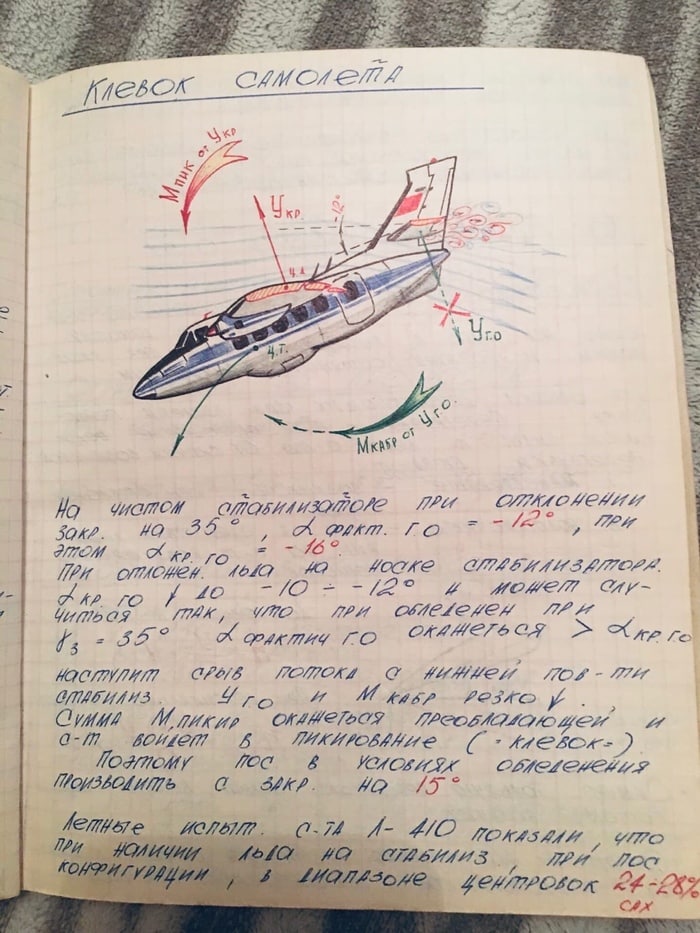 Клевок самолета
Мпик от Yкр
Yкр.
-12°
ц.д.
ц.т.
Yг.о
Мкабр от Yг.о.
На чистом стабилизаторе при отклонении
закр. на 35°, α факт. г.о = -12°, при
этом α кр. го = -16°.
При отложен. льда на носке стабилизатора.
α кр. го ↓ до -10 ÷ -12° и может слу-
читься так, что при обледенен при
γз = 35° α фактич г.о окажеться > α кр. го
наступит срыв потока с нижней пов-ти
стабилиз. Yго и М кабр резко ↓.
Сумма М.пикир окажеться преобладающей и
с-т войдет в пикирование (=клевок=).
Поэтому пос в условиях обледенения
производить с закр. на 15°
Летные испыт. с-та Л-410 показали, что
при наличии льда на стабилиз, при пос
конфигурации, в диапазоне центровок 24-28%
сах